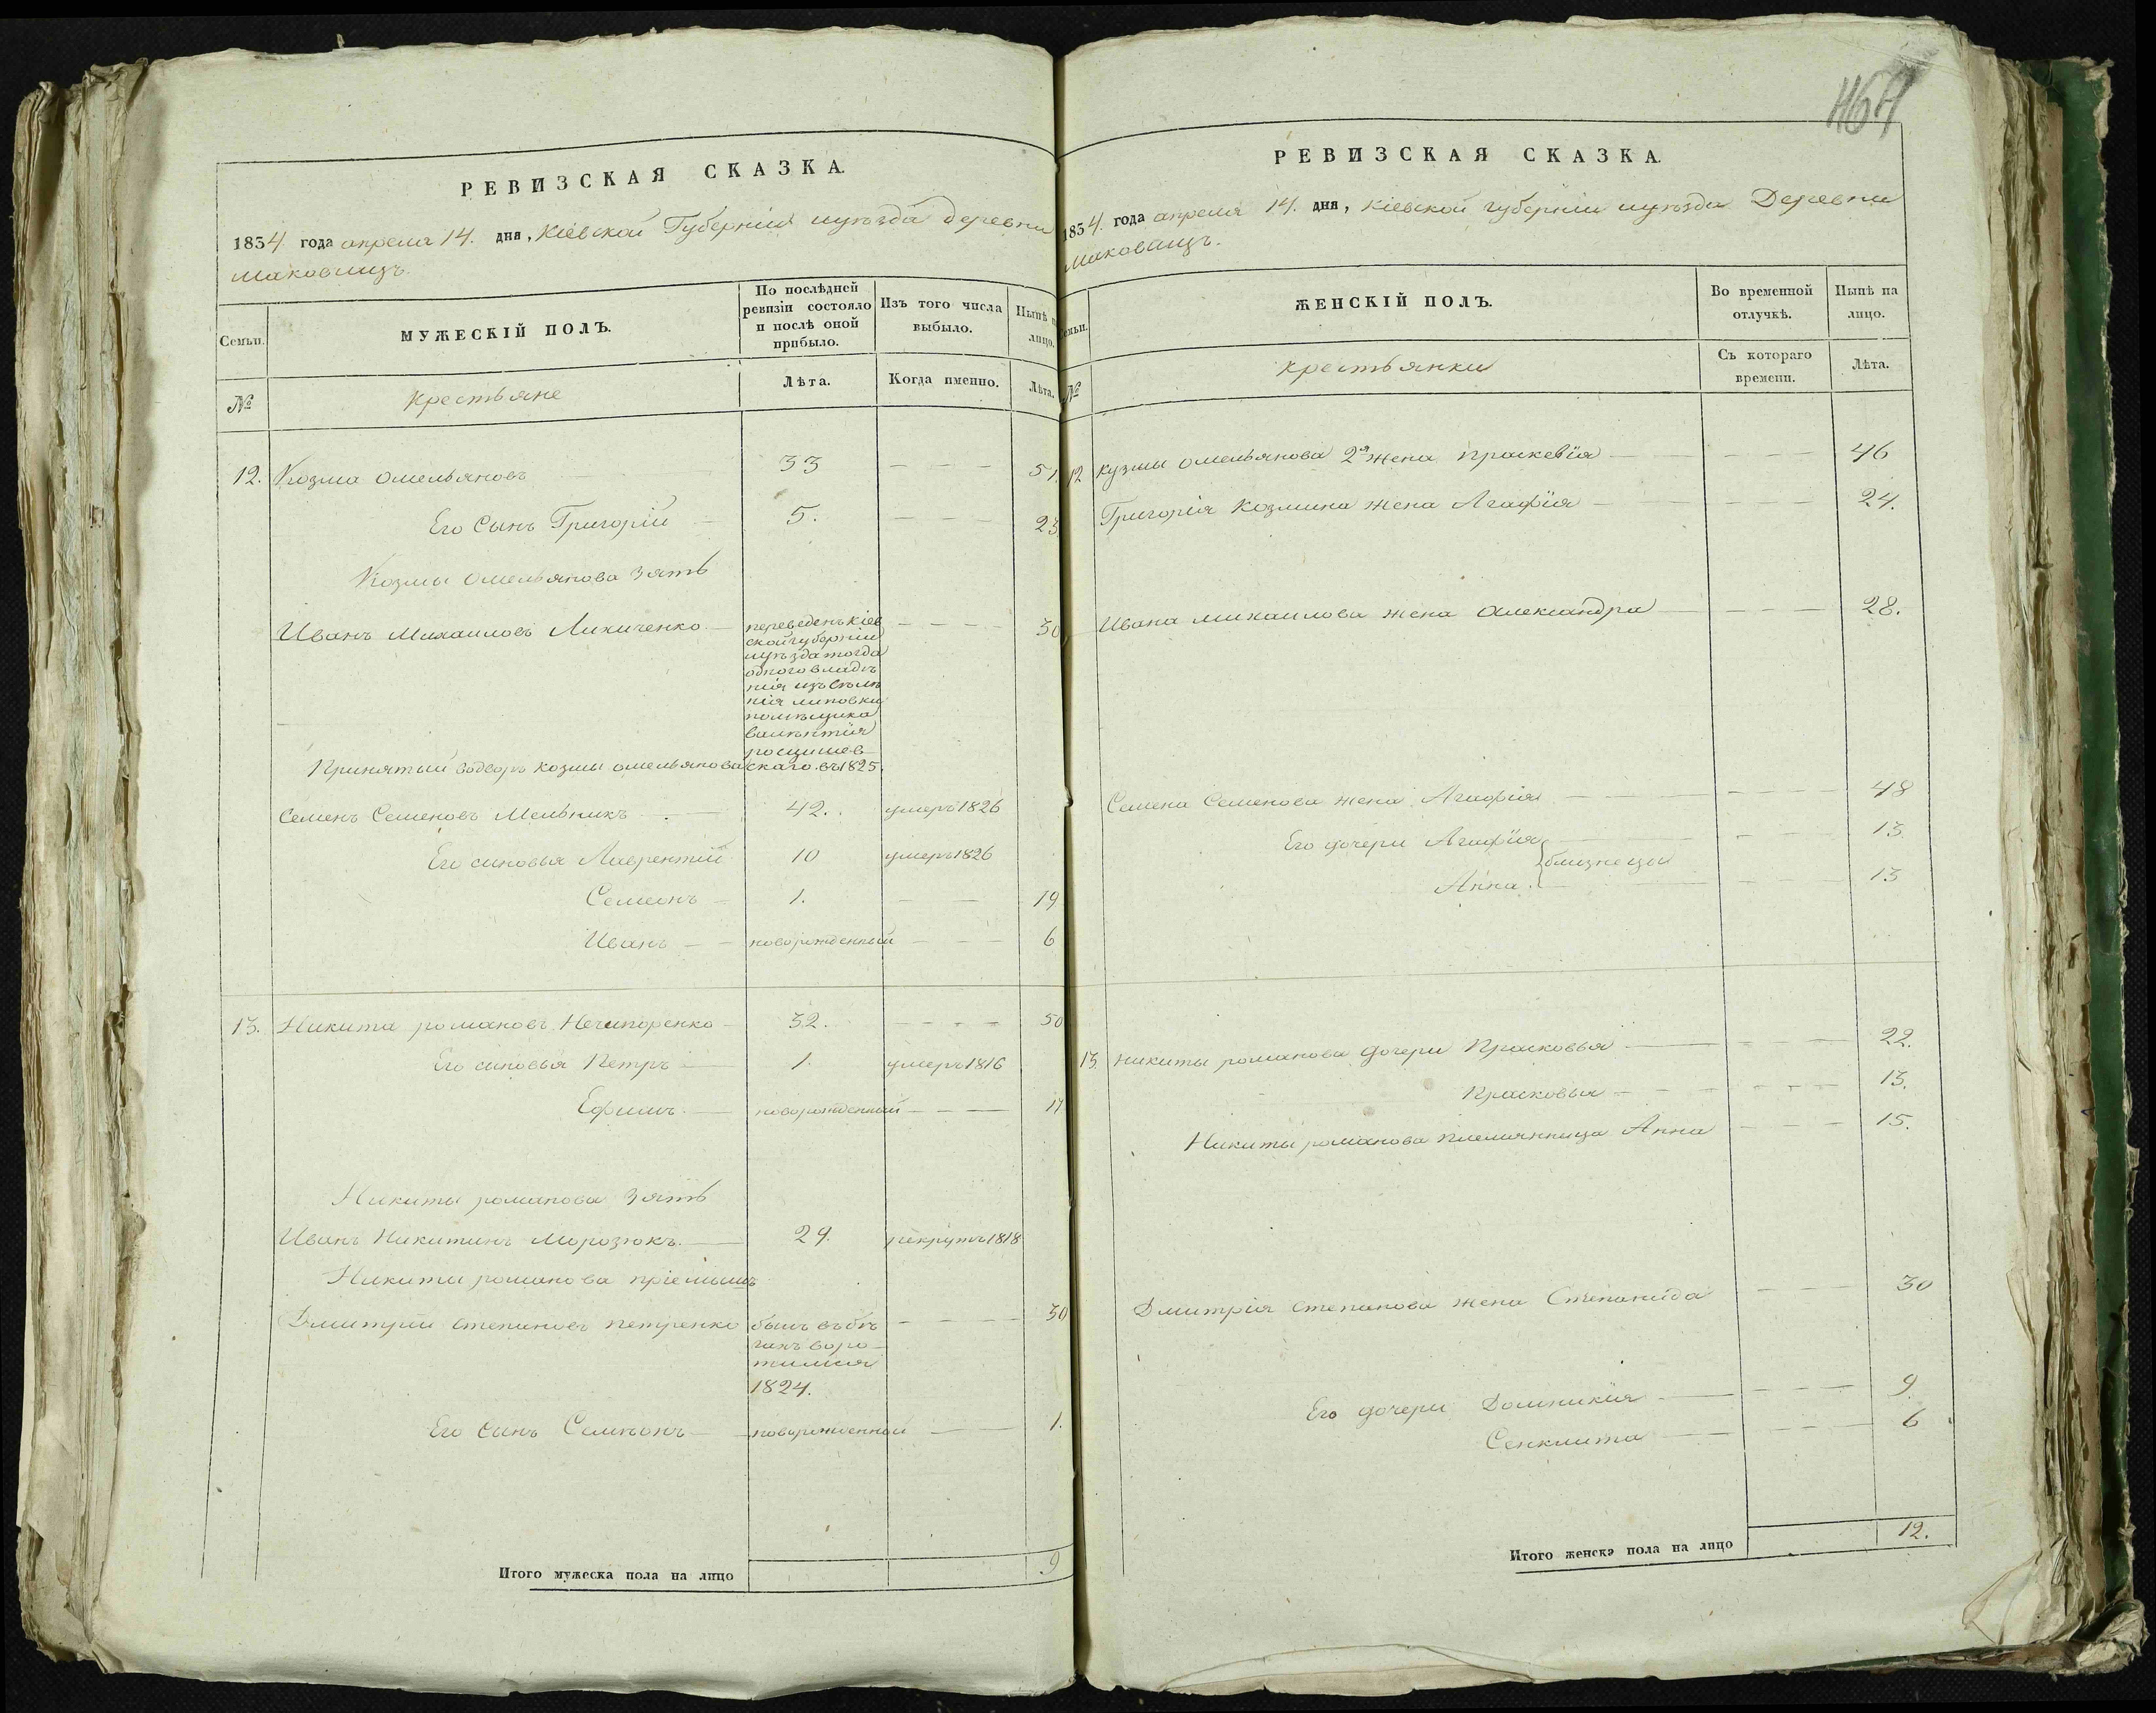 РЕВИЗСКАЯ СКАЗКА.
1834 года апреля 14. дня, Кіевской Губерніи иуезда деревни
Маковищъ.
Семьи.
МУЖЕСКІЙ ПОЛЪ.
По послѣдней ревизіи состояло и послѣ оной прибыло.
Изъ того числа выбыло.
Нынѣ на лицо.
№
крестьяне
Лѣта.
Когда именно.
Лѣта.
12. Козма Омельяновъ 33 51.
Его Сынъ Григорій 5. 23
Козмы Омельянова Зять
Иванъ Михаиловъ Ликиченко 30
переведенъ Кіев
ской губерніи
иуѣзда тогда
одного владѣ
нія изъ
нія липовки
помѣщика
валентія
росцишев
скаго въ 1825.
Принятый вдворъ козмы омельянова
Семенъ Семеновъ Мельникъ 42. умеръ 1826
Его синовья Лаврентій 10 умеръ 1826
Семионъ 1. 19
Иванъ новорожденный 6
13. Никита романовъ Нечипоренко 32. 50
Его синовья Петръ 1. умеръ 1816
Ефимъ новорожденный 17
Никиты романова Зять
Иванъ Никитинъ Морозюкъ. 29. рекрутъ 1818
Никиты романова пріемышъ
Дмитрій степановъ петренко 30
былъ въ бѣ
гахъ воро
тился
1824.
Его сынъ Семионъ новорожденный 1.
Итого мужеска пола на лицо 9
464
РЕВИЗСКАЯ СКАЗКА.
1834. года апреля 14. дня, кіевской губерніи иуезда Деревни
Маковищъ.
Семьи.
ЖЕНСКІЙ ПОЛЪ.
Во временной отлучкѣ.
Нынѣ на лицо.
№
крестьянки
Съ котораго времени.
Лѣта.
12 Кузмы омельянова 2я жена Праскевія 46
Григорія Козмина жена Агафія 24.
Ивана михаилова жена Александра 28.
Семена Семенова жена Агафія 48
Его дочери Агафія 13
близнецы
Анна. 13
13. Никиты романова дочери Прасковья 22.
Прасковья 13.
Никиты романова племянница Анна 15.
Дмитрія степанова жена Степанида 30
Его дочери Домникія 9
Сенклита 6
Итого женска пола на лицо 12.